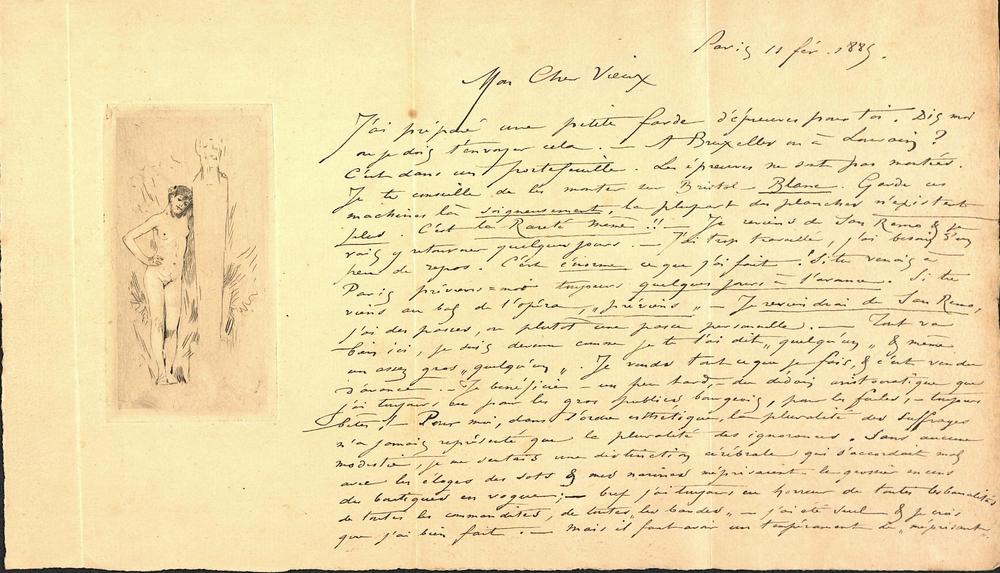 Paris 11 fév. 1885.
Mon Cher Vieux
J'ai préparé une petite farde d'épreuves pour toi. Dis moi
où je dois t'envoyer cela. — A Bruxelles ou à Louvain ?
C'est dans un portefeuille. Les épreuves ne sont pas montées.
Je te conseille de les monter sur Bristol – Blanc. Garde ces
machines là soigneusement, la plupart des planches n'existent
plus. C'est la Rareté même !! — Je reviens de San Remo &
vais y retourner quelques jours. — J'ai trop travaillé, j'ai besoin d'un
peu de repos. C'est énorme ce que j'ai fait. Si tu venais à
Paris préviens=moi toujours quelques jours à l'avance. Si tu
viens au bal de l'opéra, „préviens" — Je reviendrai de San Remo,
j'ai des passes, ou plutôt une passe personnelle. — Tout va
bien ici, je suis devenu comme je te l'ai dit „quelqu'un" & même
un assez gros „quelqu'un". Je vends tout ce que je fais, & c'est vendu
d'avance. Je bénéficie – un peu tard, – du dédain aristocratique que
j'ai toujours eu pour les gros publics bourgeois, pour les foules, – toujours
bêtes ! – Pour moi, dans l'ordre esthétique, la pluralité des suffrages
n'a jamais représenté que la pluralité des ignorances. Sans aucune
modestie, je me sentais une distinction cérébrale qui s'accordait mal
avec les éloges des sots & mes narines méprisaient le grossier encens
des boutiques en vogue ; — bref j'ai toujours eu horreur de toutes les banalités
de toutes les commandites, de toutes „les bandes" – j'ai été seul & je crois
que j'ai bien fait. — Mais il faut avoir un tempérament de „méprisant